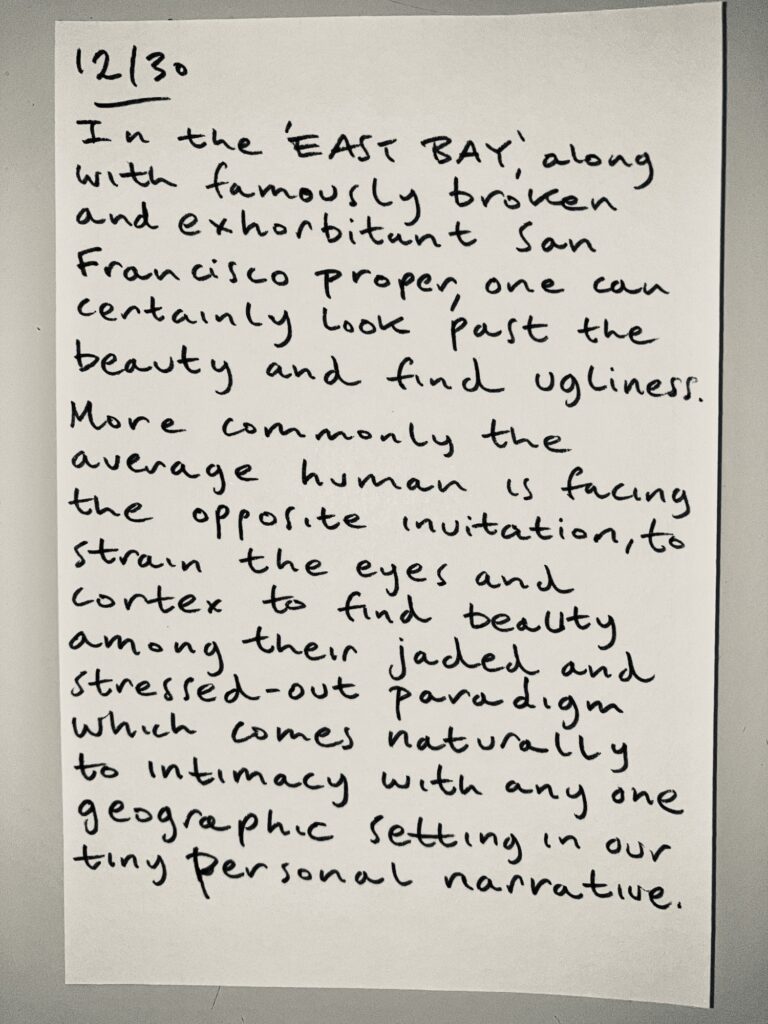 12/30
In the 'EAST BAY', along
with famously broken
and exhorbitant San
Francisco proper, one can
certainly look past the
beauty and find ugliness.
More commonly the
average human is facing
the opposite invitation, to
strain the eyes and
cortex to find beauty
among their jaded and
stressed-out paradigm
which comes naturally
to intimacy with any one
geographic setting in our
tiny personal narrative.